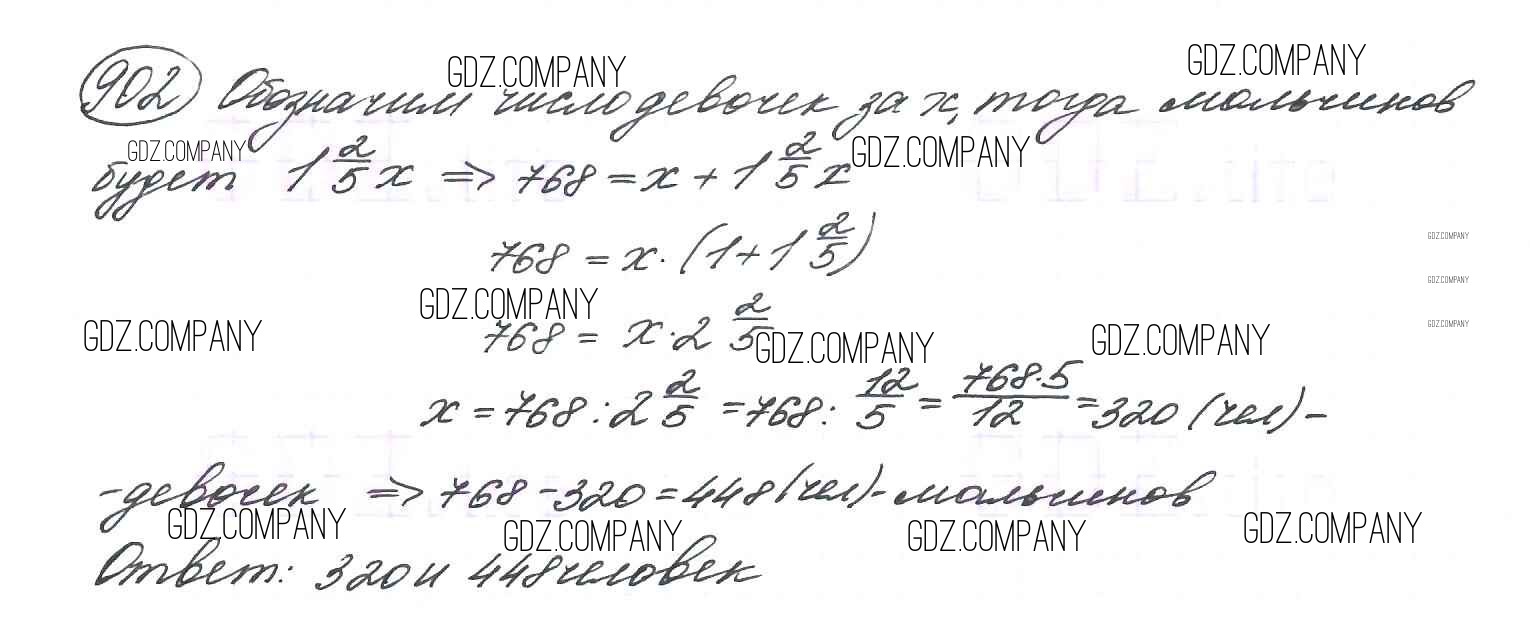 902 Обозначим число девочек за x, тогда мальчиков
GDZ.COMPANY GDZ.COMPANY
будет 1 2/5 x => 768 = x + 1 2/5 x
GDZ.COMPANY GDZ.COMPANY
768 = x · (1 + 1 2/5)
GDZ.COMPANY
GDZ.COMPANY
GDZ.COMPANY
GDZ.COMPANY GDZ.COMPANY GDZ.COMPANY GDZ.COMPANY
768 = x · 2 2/5
x = 768 : 2 2/5 = 768 : 12/5 = 768·5/12 = 320 (чел) -
- девочек => 768 - 320 = 448 (чел) - мальчиков
GDZ.COMPANY GDZ.COMPANY GDZ.COMPANY GDZ.COMPANY
Ответ: 320 и 448 человек